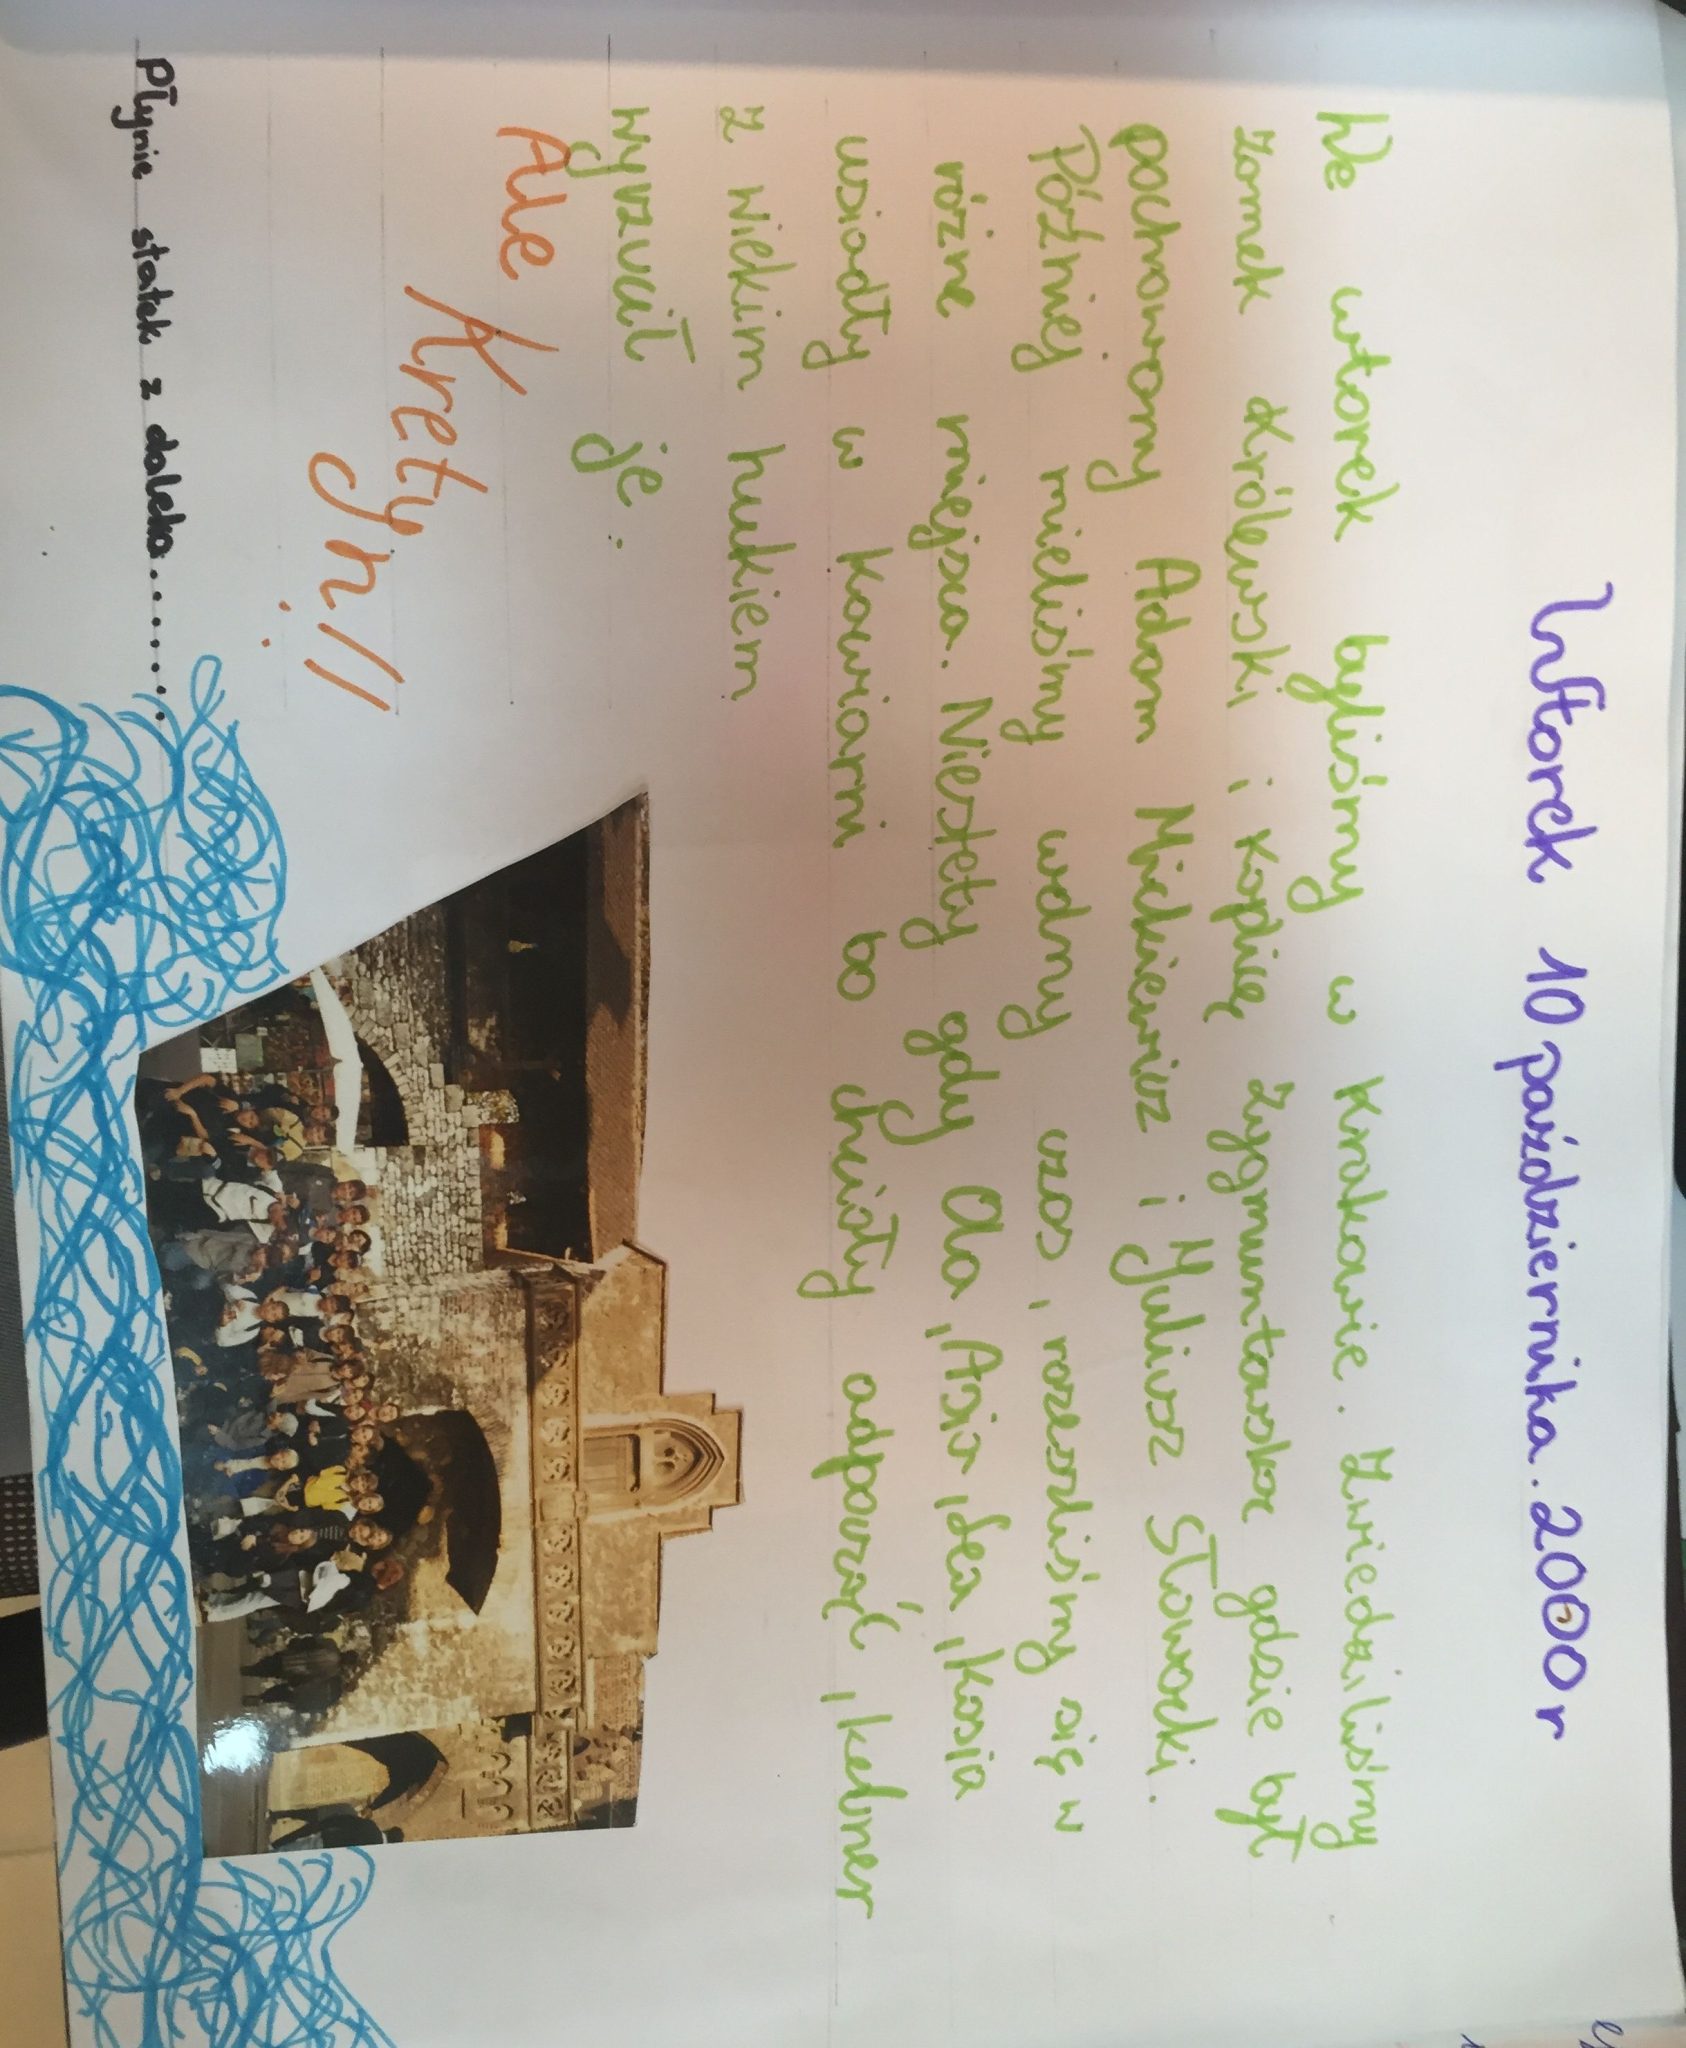 Wtorek 10 października. 2000 r
We wtorek byliśmy w Krakowie. Zwiedziliśmy
zamek Królewski i kopię Zygmuntawska gdzie był
pochowowany Adam Mickiewicz i Juliusz Słowacki.
Później mieliśmy wolny czas, rozeszliśmy się w
różne miejsca. Niestety gdy Ola, Asia, Iea, Kasia
usiadły w kawiarni bo chciały odpocząć, kelner
z wiekim hukiem
wyrzucił je.
Ale
Krety
n!!
Płynie statek z daleka.......